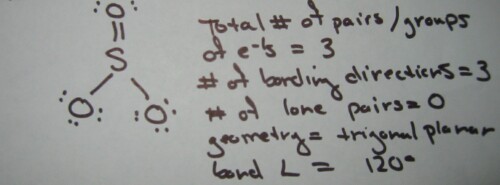 O
S
O O
Total # of pairs/groups
of e-'s = 3
# of bonding directions = 3
# of lone pairs = 0
geometry = trigonal planar
bond L = 120°